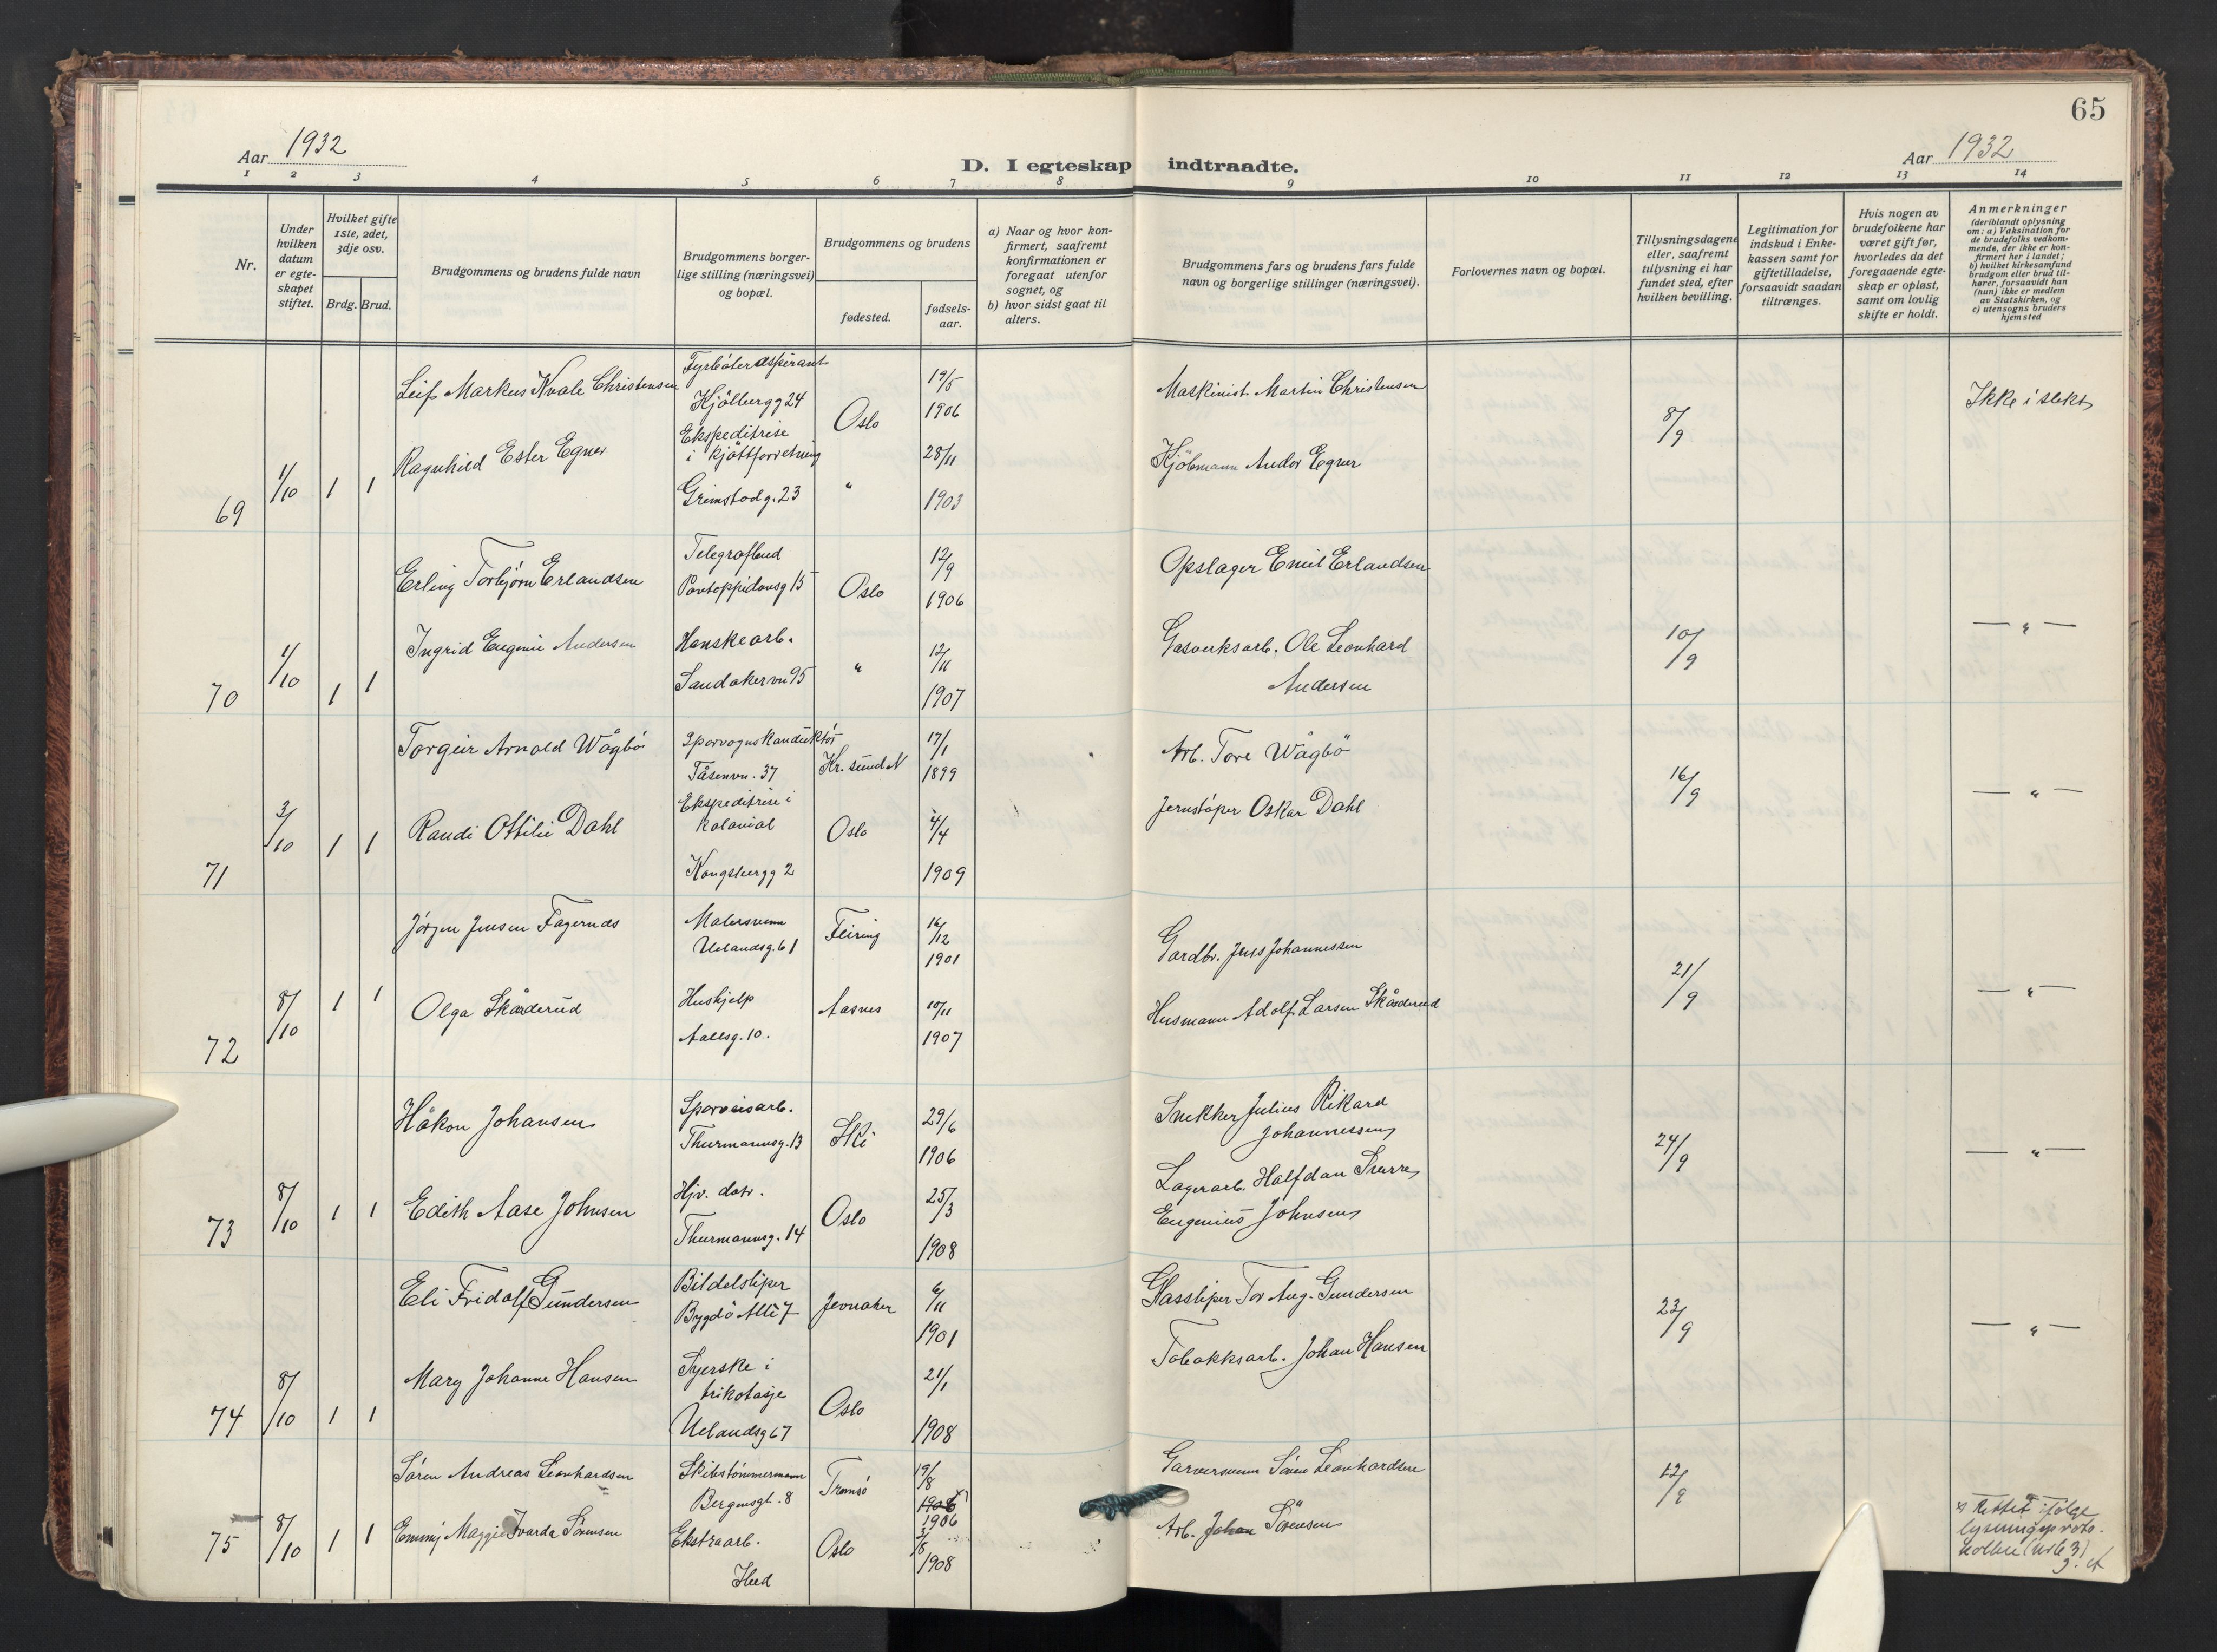 65
Aar 1932
D. I egteskap indtraadte.
Aar 1932
1 2 3 4 5 6 7 8 9 10 11 12 13 14
Nr.
Under
hvilken
datum
er egte-
skapet
stiftet.
Hvilket gifte
1ste, 2det,
3dje osv.
Brdg. Brud.
Brudgommens og brudens fulde navn
Brudgommens borger-
lige stilling (næringsvei)
og bopæl.
Brudgommens og brudens
fødested.
fødsels-
aar.
a) Naar og hvor kon-
firmert, saafremt
konfirmationen er
foregaat utenfor
sognet, og
b) hvor sidst gaat til
alters.
Brudgommens fars og brudens fars fulde
navn og borgerlige stillinger (næringsvei).
Forlovernes navn og bopæl.
Tillysningsdagene
eller, saafremt
tillysning ei har
fundet sted, efter
hvilken bevilling.
Legitimation for
indskud i Enke-
kassen samt for
giftetilladelse,
forsaavidt saadan
tiltrænges.
Hvis nogen av
brudefolkene har
været gift før,
hvorledes da det
foregaaende egte-
skap er opløst,
samt om lovlig
skifte er holdt.
Anmerkninger
(deriblandt oplysning
om: a) Vaksination for
de brudefolks vedkom-
mende, der ikke er kon-
firmert her i landet;
b) hvilket kirkesamfund
brudgom eller brud til-
hører, forsaavidt han
(hun) ikke er medlem
av Statskirken, og
c) utensogns bruders
hjemsted
69
1/10
1 1
Leif Markus Kvale Christensen
Fyrbøteraspirant
Kjölbergg 24
Oslo
19/5
1906
Maskinist Martin Christensen
8/9
Ikke i slekt
Ragnhild Ester Egner
Ekspeditrise
i kjöttforretning
Grimstadg. 23
"
28/11
1903
Kjöbmann Andor Egner
70
1/10
1 1
Erling Torbjørn Erlandsen
Telegrafbud
Pontoppidansg 15
Oslo
12/9
1906
Opslager Emil Erlandsen
10/9
— " —
Ingrid Eugenie Andersen
Hanskearb.
Sandakervn 95
"
12/11
1907
Gasverksarb. Ole Leonhard
Andersen
71
3/10
1 1
Torgeir Arnold Wågbö
Sporvognskonduktör
Tåsenvn. 37
Kr. sund N
17/1
1899
Arb. Tore Wågbö
16/9
— " —
Randi Ottilie Dahl
Ekspeditrise i
kolonial
Kongsbergg 2
Oslo
4/4
1909
Jernstöper Oskar Dahl
72
8/10
1 1
Jörgen Jensen Fagernds
Malersvenn
Uelandsg. 61
Feiring
16/12
1901
Gardbr. Jens Johannessen
21/9
— " —
Olga Skåderud
Hushjelp
Aallsg. 10.
Aasnes
10/11
1907
Husmann Adolf Larsen Skåderud
73
8/10
1 1
Håkon Johansen
Sporveisarb.
Thurmannsg. 13
Ski
29/6
1906
Snekker Julius Rikard
Johannessen
24/9
— " —
Edith Aase Johnsen
Hjv. datr.
Thurmannsg. 14
Oslo
25/3
1908
Lagerarb. Halfdan Snorre
Eugenius Johnsen
74
8/10
1 1
Eli Fridolf Gundersen
Bildelsliper
Bygdö Allé 7
Jevnaker
6/11
1901
Glassliper Tor Aug. Gundersen
23/9
— " —
Mary Johanne Hansen
Syerske i
trikotasje
Uelandsg 67
Oslo
21/1
1908
Tobakksarb. Johan Hansen
75
8/10
1 1
Sören Andreas Leonhardsen
Skibstömmermann
Bergensgt. 8
Tromsö
19/8
1906
Garversvenn Sören Leonhardsen
12/9
Emmy Maggie Ivarda Sörensen
Ekstraarb.
Oslo
1908
Arb. Johan Sörensen
x) Rettet ifölge
lysningsproto-